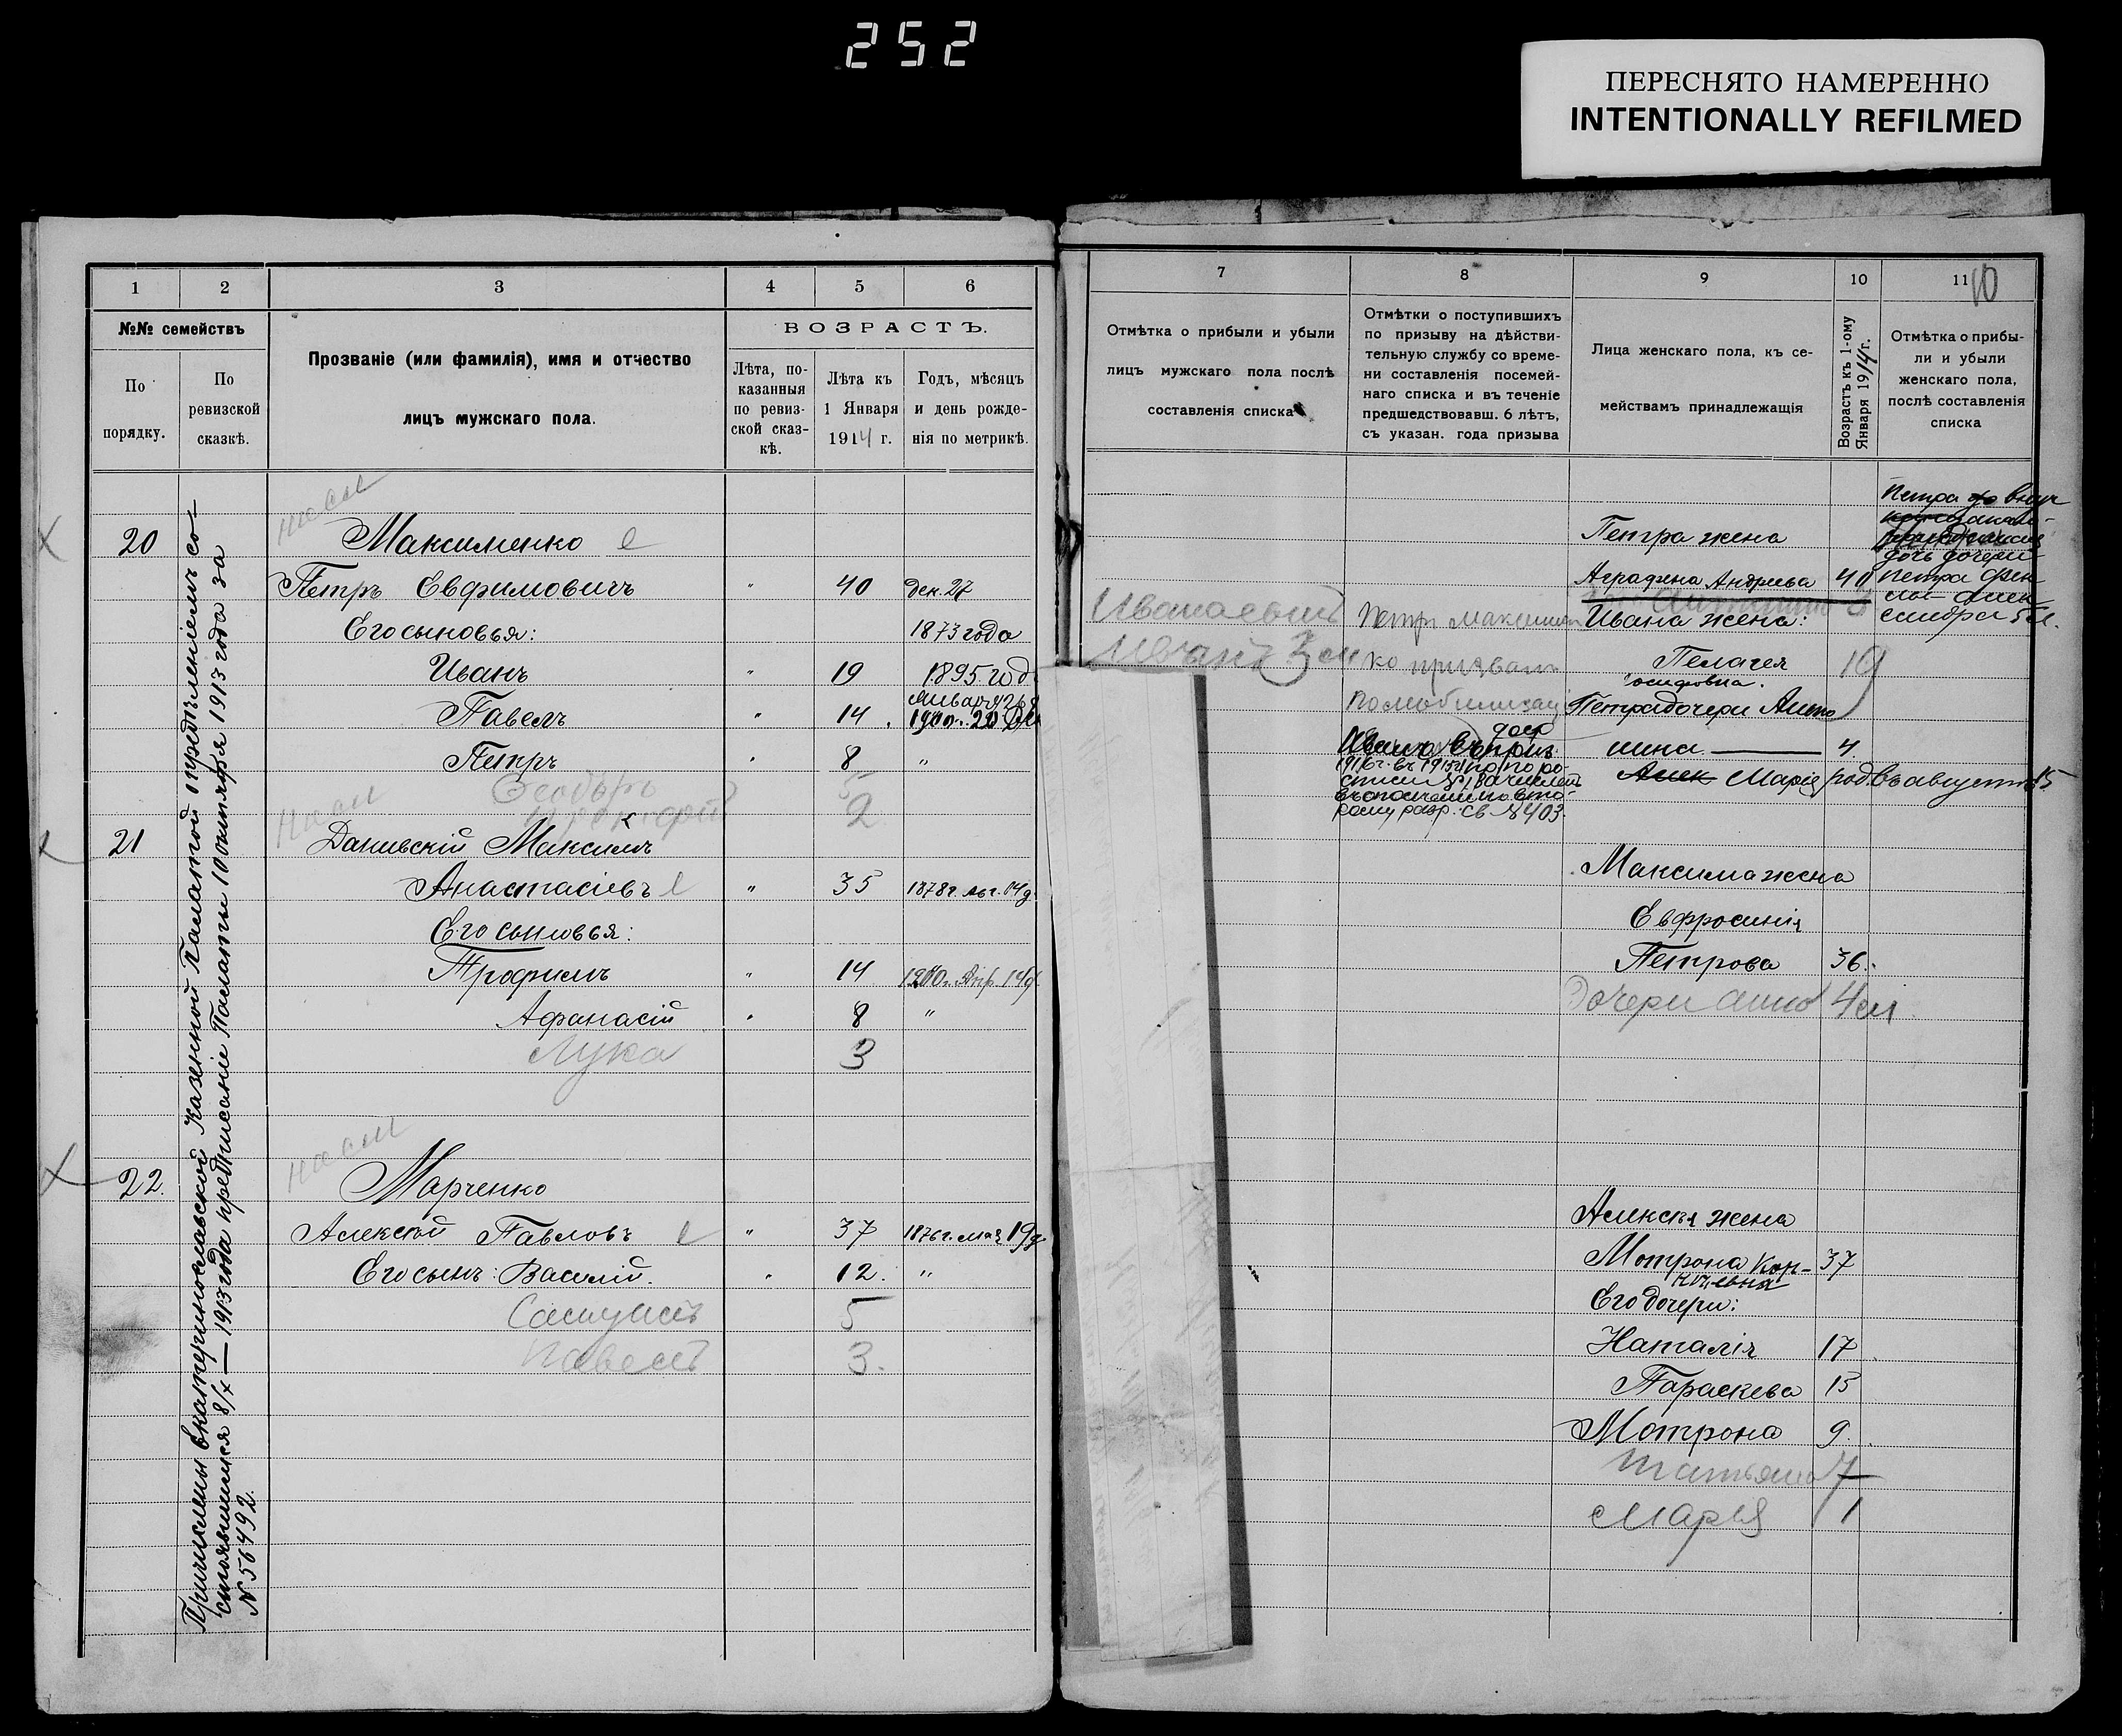 252
ПЕРЕСНЯТО НАМЕРЕННО
INTENTIONALLY REFILMED
1 2 3 4 5 6
№№ семействъ
По порядку.
По ревизской сказкѣ.
Прозваніе (или фамилія), имя и отчество
лицъ мужскаго пола.
ВОЗРАСТЪ.
Лѣта, по-
казанныя
по ревиз-
ской сказ-
кѣ.
Лѣта къ
1 Января
1914 г.
Годъ, мѣсяцъ
и день рожде-
нія по метрикѣ.
Причислены Екатеринославской Казенной Палатой опредѣленіемъ со-
стоявшимся 8/х — 1913 года предписаніе Палаты 10 октября 1913 года за
№ 56492.
20 Максименко
Петръ Евфимовичъ " 40 дек. 27
Его сыновья: 1873 года
Иванъ " 19 1895 год
Января
Павелъ " 14. 1900
Петръ " 8 "
Феодоръ 5
2
21 Данивскій Максимъ
Анастасіевъ " 35 1878 г. Авг. 04 д.
Его сыновья:
Трофимъ " 14 1900 г. Апр. 14 д.
Афанасій " 8 "
Лука 3
22. Марченко
Алексѣй Павловъ " 37 1876 г. мая 19 д.
Его сынъ: Василій. " 12. "
Самуилъ 5
Павелъ 3.
7 8 9 10 11
10
Отмѣтка о прибыли и убыли
лицъ мужскаго пола послѣ
составленія списка
Отмѣтки о поступившихъ
по призыву на дѣйстви-
тельную службу со време-
ни составленія посемей-
наго списка и въ теченіе
предшедствовавш. 6 лѣтъ,
съ указан. года призыва
Лица женскаго пола, къ се-
мействамъ принадлежащія
Возрастъ къ 1-ому
Января 1914 г.
Отмѣтка о прибы-
ли и убыли
женскаго пола,
послѣ составленія
списка
Петра
дочь дочери
Петра
Петра жена
Аграфена Андреева 40
Ивана жена:
Пелагея 19
осиповна.
Петра дочери Анто
нина — 4
Марія род. въ августѣ 15
Ивана сынъ
Иванъ 3
Петр Максимен
ко призванъ
по мобилизац
Иванъ
1916 г. въ 1915 г.
№ 403.
Максима жена
Евфросинія
Петрова 36.
Дочери Анна 4
Алексѣя жена
Мотрона Кор- 37
нѣевна
Его дочери:
Наталія 17
Параскева 15
Мотрона 9.
Татьяна 7
Марья 1